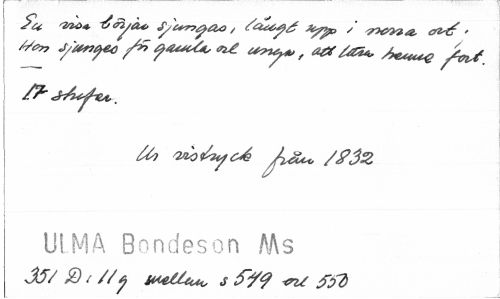 En visa börjar sjungas, långt upp i norra ort,
Hon sjunges för gamla och unga, att lära henne fort.
—
17 strofer.
Ur vistryck från 1832
ULMA Bondeson Ms
351 D: 11 q mellan s 549 och 550